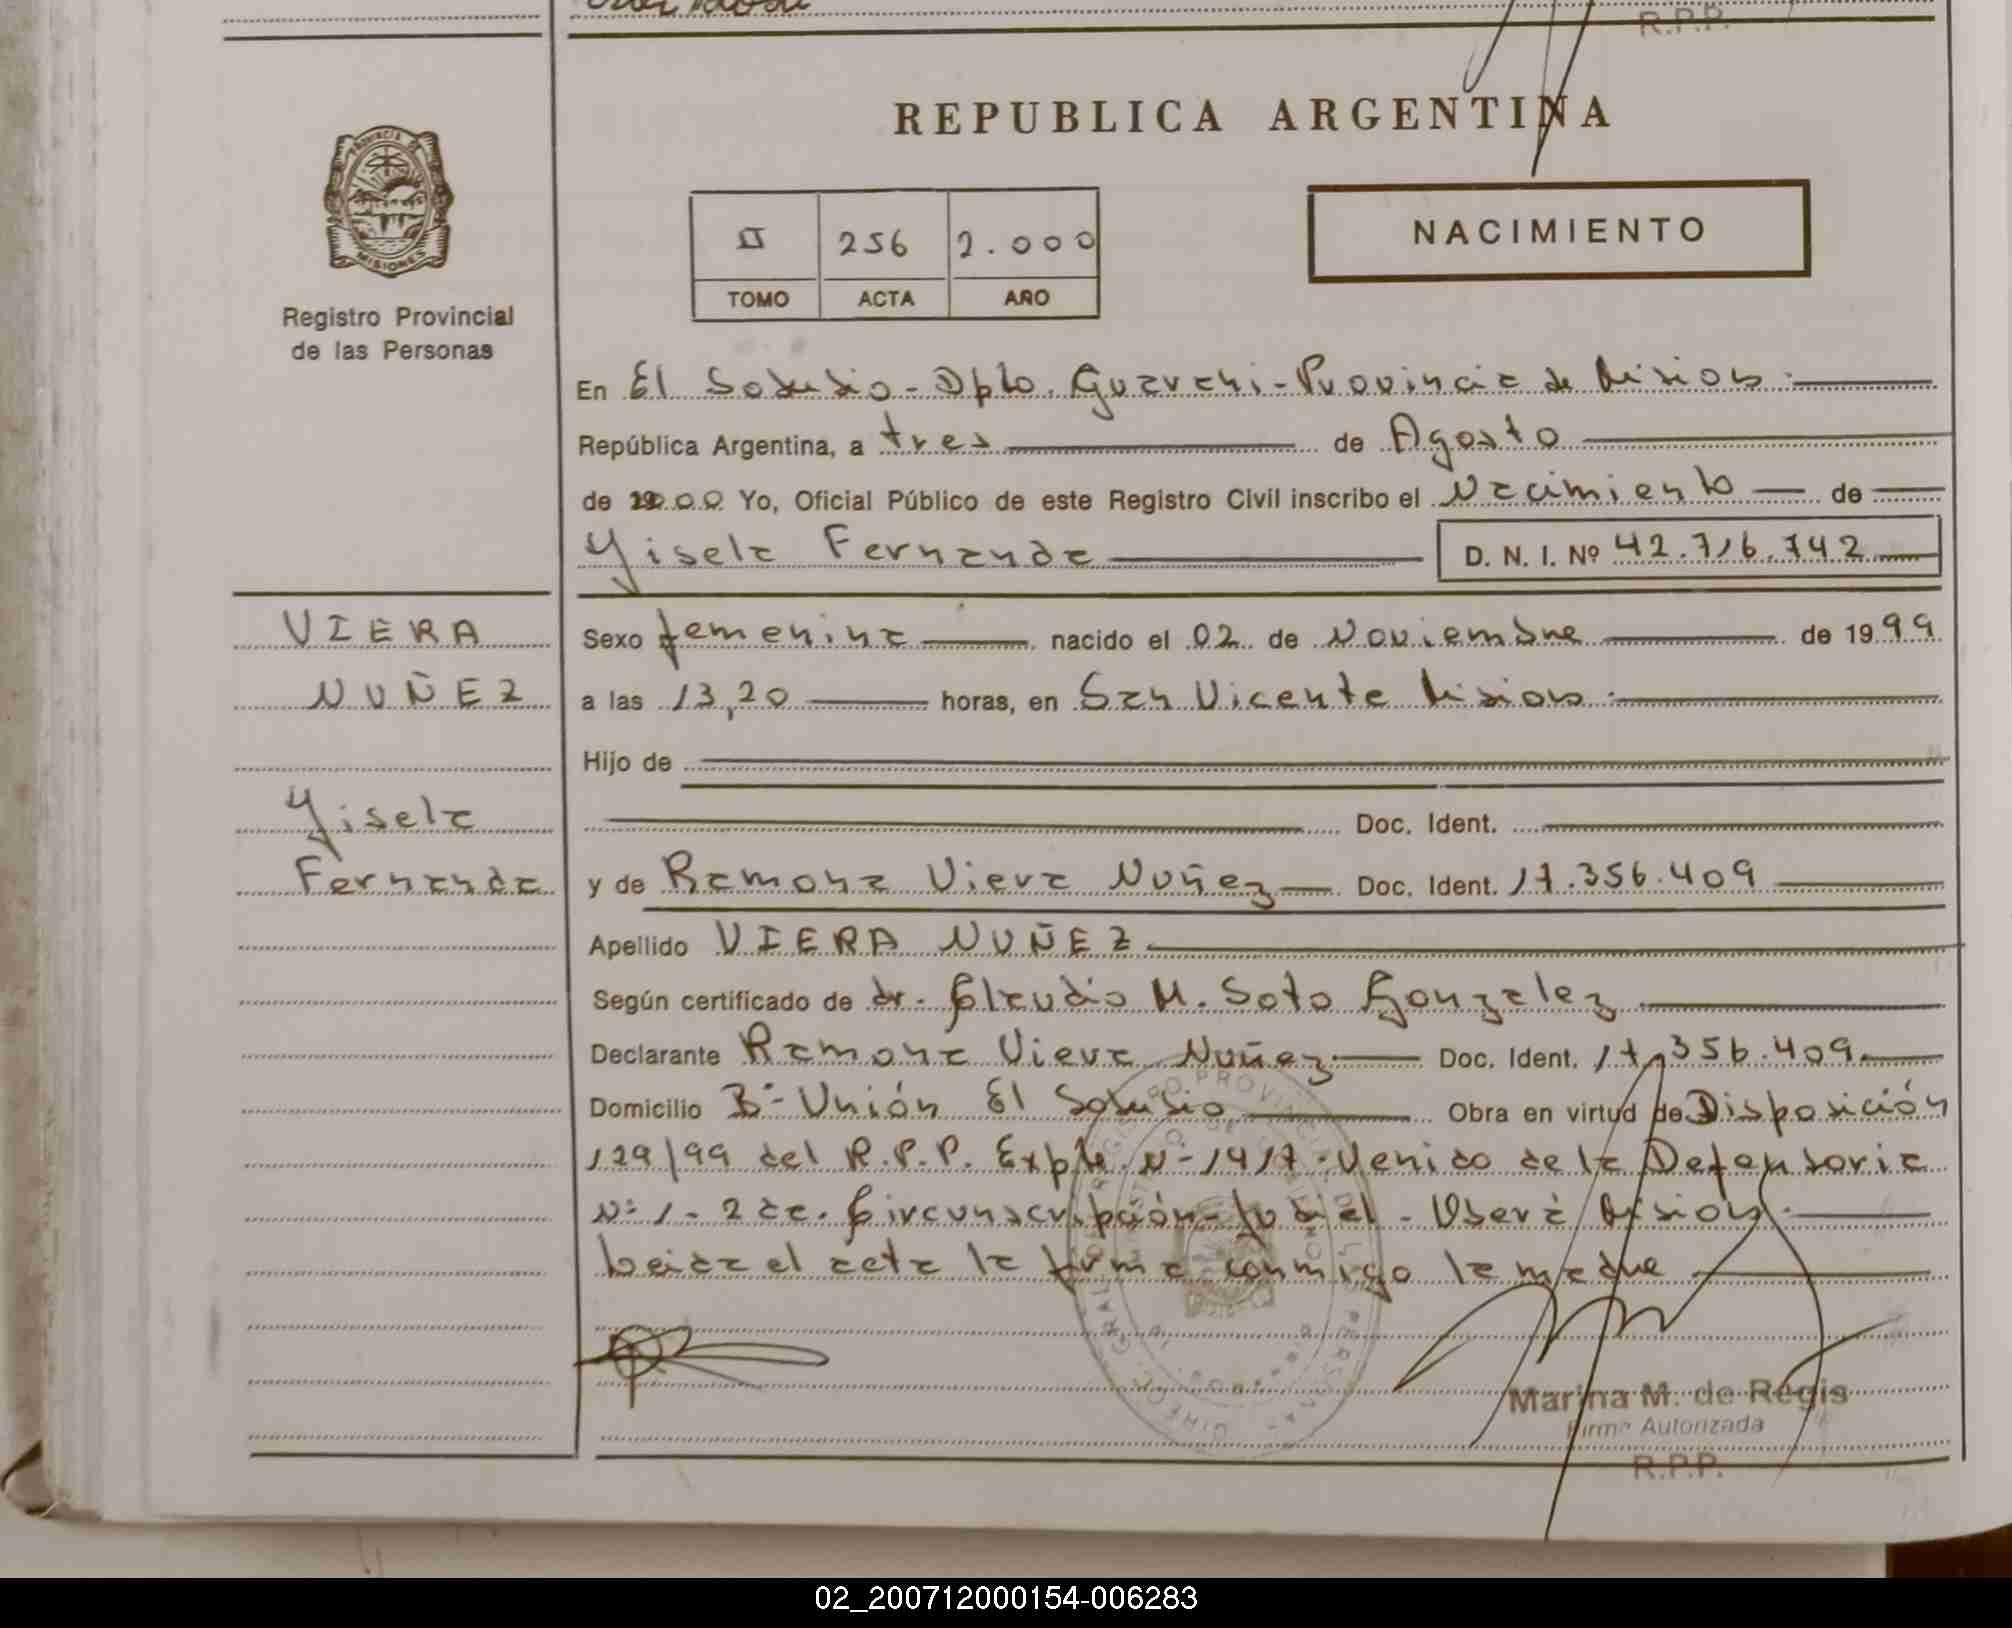 R.P.P.
REPUBLICA ARGENTINA
PROVINCIA DE
MISIONES
Registro Provincial
de las Personas
II 256 2.000
TOMO ACTA AÑO
NACIMIENTO
En El Soberbio - Dpto. Guarani - Provincia de Misiones.
República Argentina, a tres de Agosto
de 2000 Yo, Oficial Público de este Registro Civil inscribo el Nacimiento de
Yisela Fernanda D. N. I. Nº 42.716.742
VIERA
NUÑEZ
Yisela
Fernanda
Sexo femenina nacido el 02 de Noviembre de 1999
a las 13,20 horas, en San Vicente Misiones.
Hijo de
Doc. Ident.
y de Ramona Viera Nuñez Doc. Ident. 17.356.409
Apellido VIERA NUÑEZ
Según certificado de dr. Claudio M. Soto Gonzalez
Declarante Ramona Viera Nuñez Doc. Ident. 17.356.409
Domicilio Bº Unión El Soberbio Obra en virtud de Disposición
129/99 del R.P.P. Expte. Nº 1417. Venido de la Defensoria
Nº 1 - 2da. Circunscripción Judial - Oberá Misiones.
Leida el acta la firma conmigo la madre
Marina M. de Regis
Firma Autorizada
R.P.P.
02_200712000154-006283